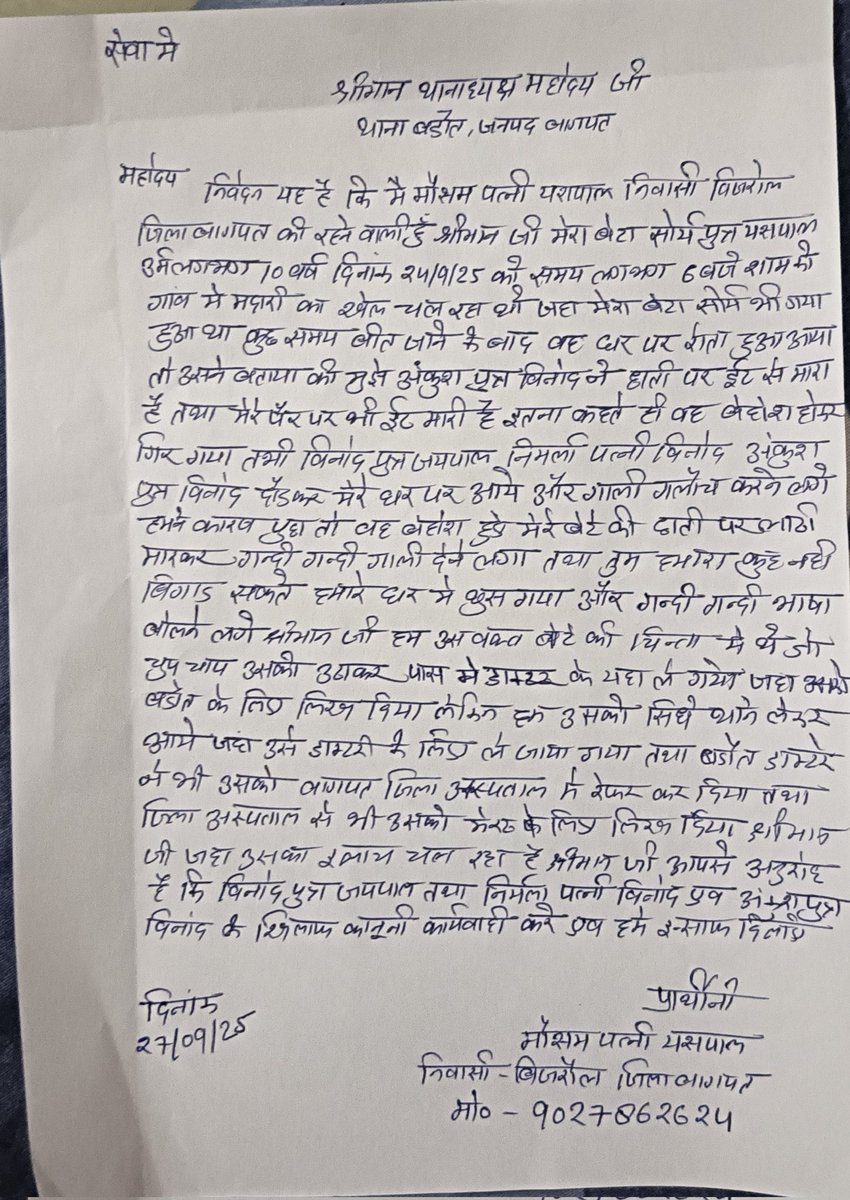 सेवा मे
श्रीमान थानाध्यक्ष महोदय जी
थाना बडौत, जनपद बागपत
महोदय निवेदन यह है कि मै मौसम पत्नी यशपाल निवासी बिजरोल
जिला बागपत की रहने वाली हूँ श्रीमान जी मेरा बेटा सोर्य पुत्र यसपाल
उर्म लगभग 10 वर्ष दिनांक 24/9/25 को समय लगभग 6 बजे शाम को
गांव मे मदारी का खेल चल रहा था जहा मेरा बेटा सोर्य भी गया
हुआ था कुछ समय बीत जाने के बाद वह घर पर रोता हुआ आया
तो उसने बताया की मुझे अंकुश पुत्र विनोद ने छाती पर ईट से मारा
है तथा मेरे पैर पर भी ईट मारी है इतना कहते ही वह बेहोश होकर
गिर गया तभी विनोद पुत्र जयपाल निमर्ला पत्नी विनोद अंकुश
पुत्र विनोद दौडकर मेरे घर पर आये और गाली गलौच करने लगे
हमने कारण पुछा तो वह बेहोश हुए मेरे बेटे की छाती पर लाठी
मारकर गन्दी गन्दी गाली देने लगा तथा तुम हमारा कुछ नही
बिगाड सकते हमारे घर मे घुस गया और गन्दी गन्दी भाषा
बोलने लगे श्रीमान जी हम उस वक्त बेटे की चिन्ता मे थे जो
चुप चाप उसको उठाकर पास मे डाक्टर के यहा ले गये जहा उसको
बडोत के लिए लिख दिया लेकिन हम उसको सिधे थाने लेकर
आये जहां उसे डाक्टरी के लिए ले जाया गया तथा बडौत डाक्टर
ने भी उसको बागपत जिला अस्पताल मे रेफर कर दिया तथा
जिला अस्पताल से भी उसको मेरठ के लिए लिख दिया श्रीमान
जी जहा उसका इलाय चल रहा है श्रीमान जी आपसे अनुरोध
है कि विनोद पुत्र जयपाल तथा निर्मला पत्नी विनोद एव अंकुश पुत्र
विनोद के खिलाफ कानूनी कार्यवाही करे एव हमे इन्साफ दिलाए
दिनांक
27/09/25
प्रार्थीनी
मौसम पत्नी यसपाल
निवासी - बिजरौल जिला बागपत
मो० - 9027862624